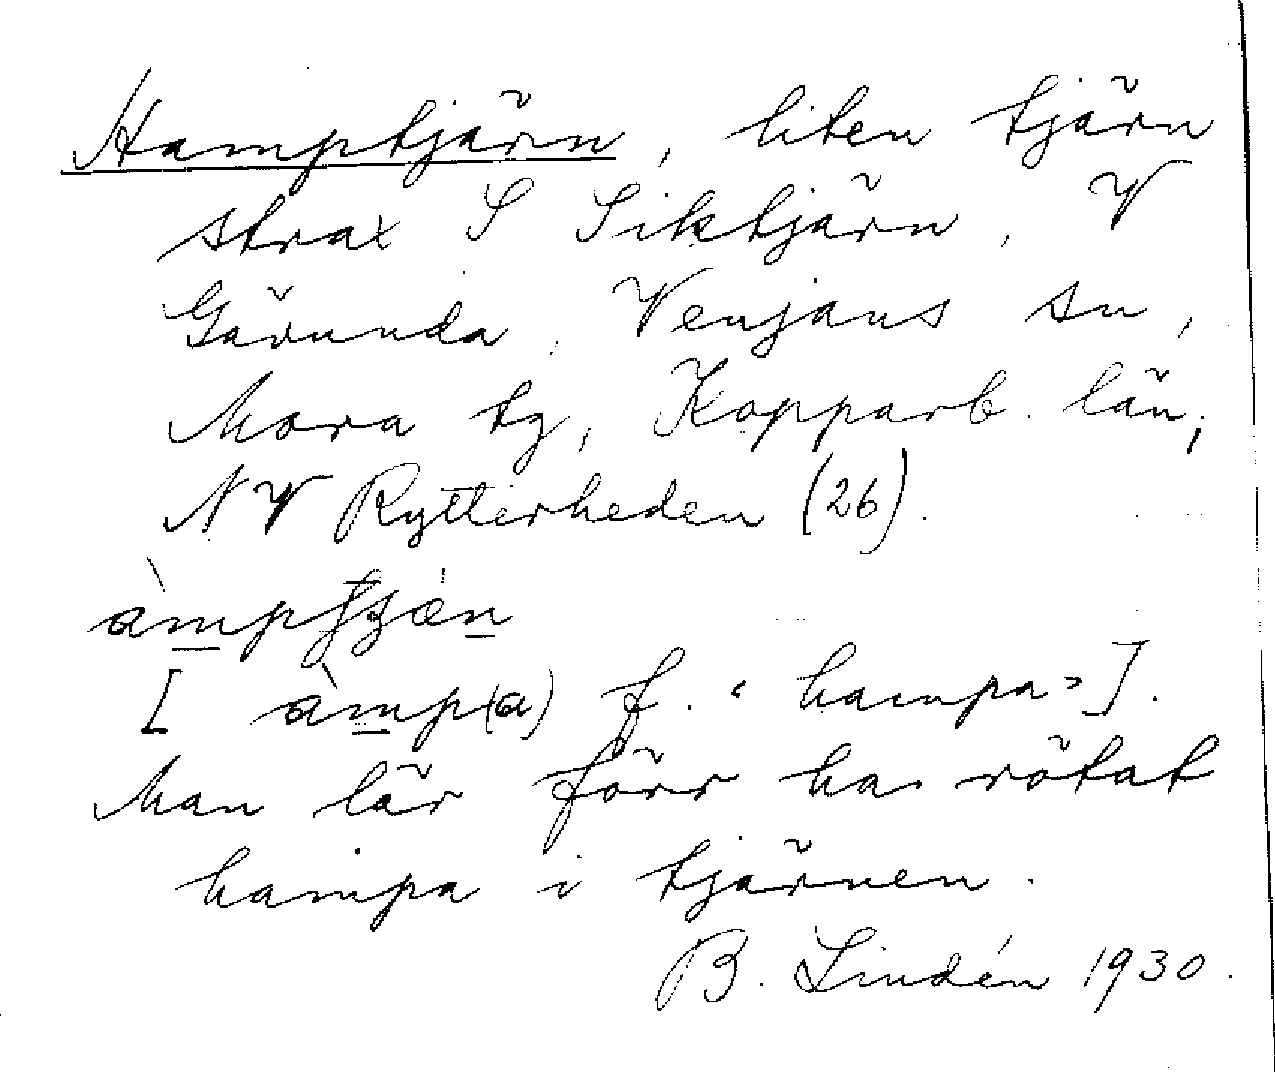 Hamptjärn, liten tjärn
strax S Siktjärn, V
Gärunda, Venjans sn,
Mora tg, Kopparb. län,
NV Rytterheden (26).
[ àmp(a) f. "hampa"].
Man lär förr ha rötat
hampa i tjärnen.
B. Lindén 1930.